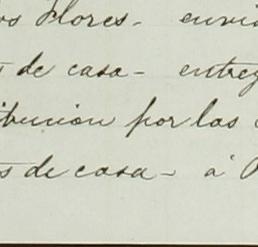 os Flores - envia
s de casa - entreg
ibucion por las
s de casa - á